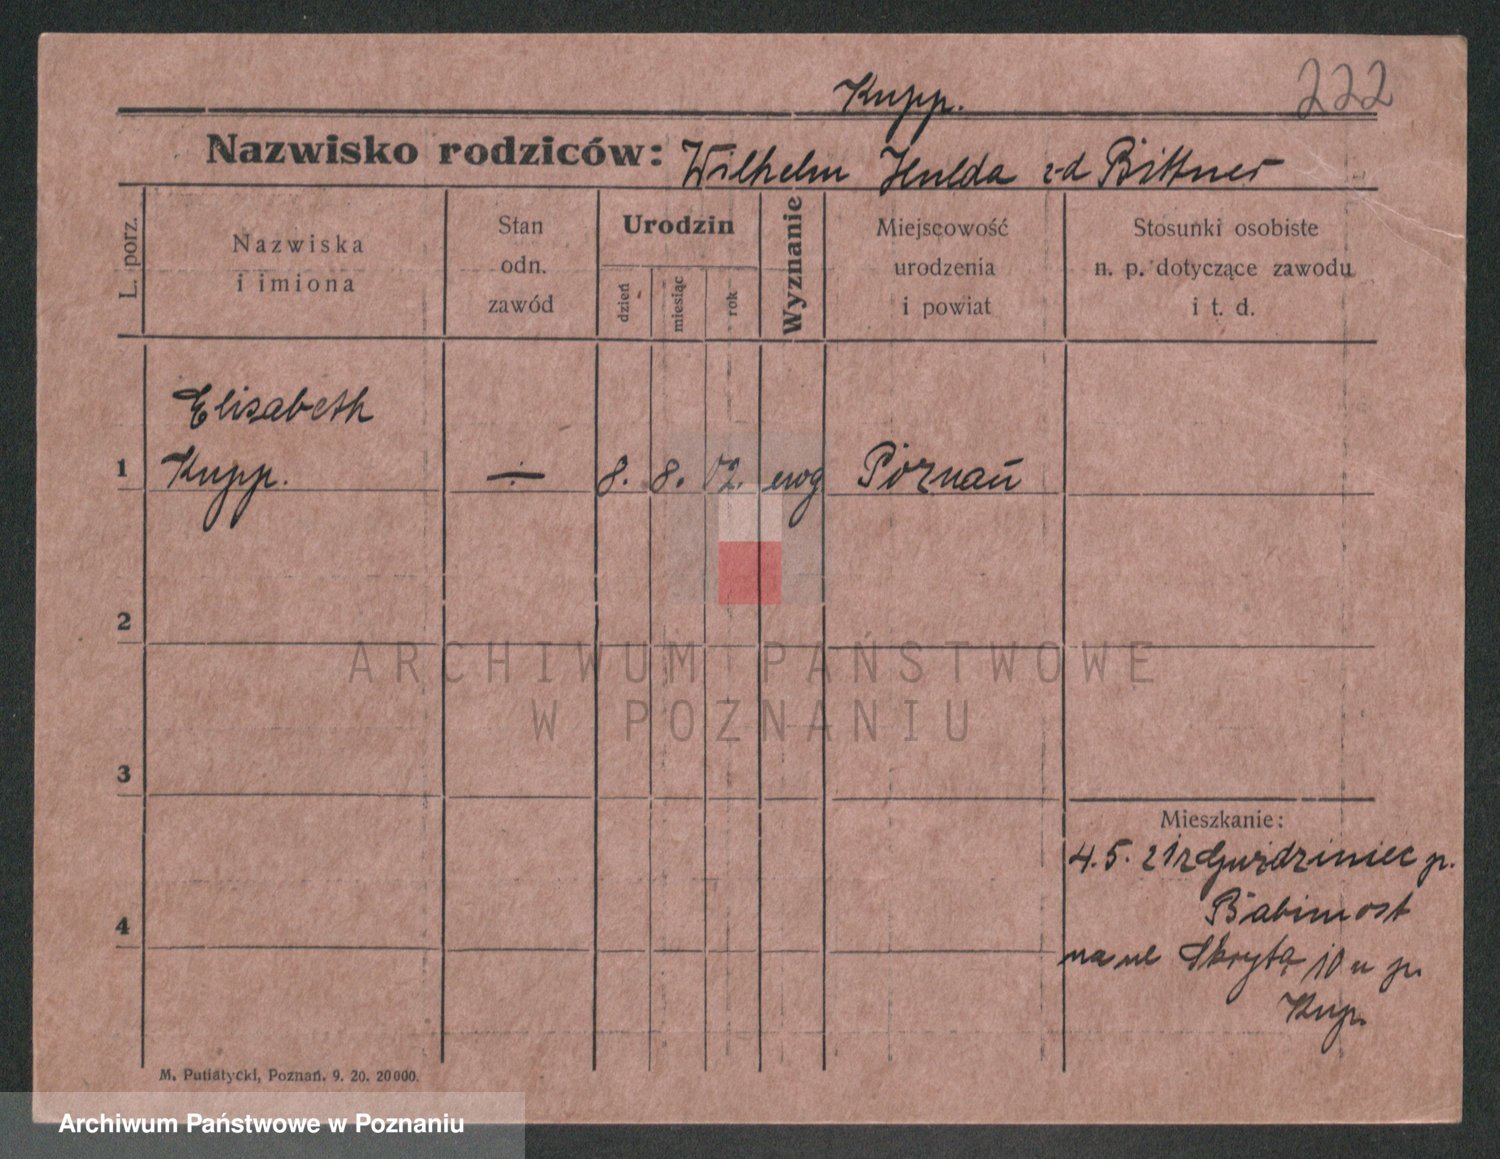 222
Kupp.
Nazwisko rodziców: Wilhelm Hulda z-d Bittner
L. porz.
Nazwiska
i imiona
Stan
odn.
zawód
Urodzin
dzień
miesiąc
rok
Wyznanie
Miejscowość
urodzenia
i powiat
Stosunki osobiste
n. p. dotyczące zawodu
i t. d.
Elisabeth
1 Kupp. 8. 8. 02. ewg Poznań
2
3
4
Mieszkanie:
4. 5. 21 z p.
Babimost
na ul Skrytą 10 u p.
Kup.
M. Putiatycki, Poznań. 9. 20. 20000.
ARCHIWUM PAŃSTWOWE
W POZNANIU
Archiwum Państwowe w Poznaniu